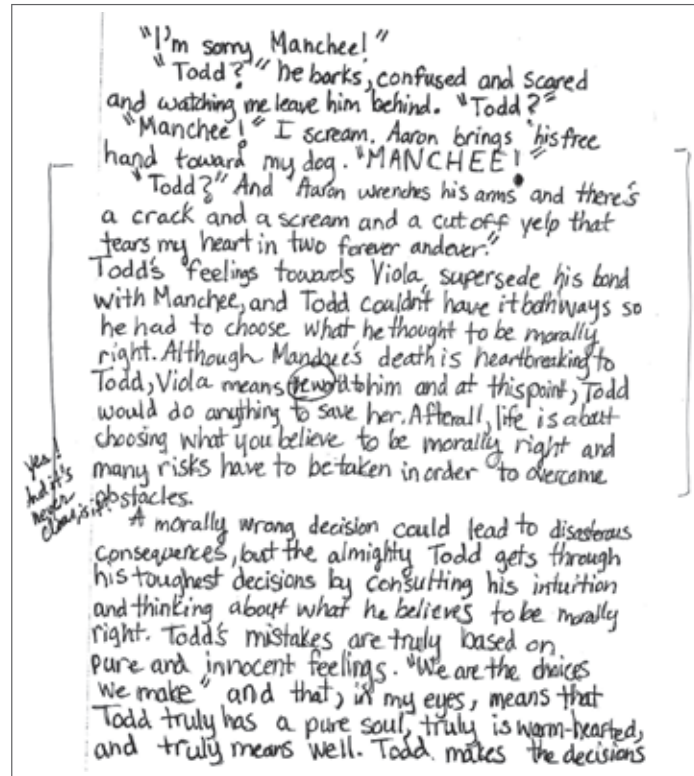 "I'm sorry Manchee!"
"Todd?" he barks, confused and scared
and watching me leave him behind. "Todd?"
"Manchee!" I scream. Aaron brings his free
hand toward my dog. "MANCHEE!"
"Todd?" And Aaron wrenches his arms and there's
a crack and a scream and a cut off yelp that
tears my heart in two forever and ever."
Todd's feelings towards Viola, supersede his bond
with Manchee, and Todd couldn't have it both ways so
he had to choose what he thought to be morally
right. Although Manchee's death is heartbreaking to
Todd, Viola means the world to him and at this point, Todd
would do anything to save her. Afterall, life is about
choosing what you believe to be morally right and
many risks have to be taken in order to overcome
obstacles.
yes!
but it's
never
clear, is it?
A morally wrong decision could lead to disasterous
consequences, but the almighty Todd gets through
his toughest decisions by consulting his intuition
and thinking about what he believes to be morally
right. Todd's mistakes are truly based on
pure and innocent feelings. "We are the choices
we make" and that, in my eyes, means that
Todd truly has a pure soul, truly is warm-hearted,
and truly means well. Todd makes the decisions